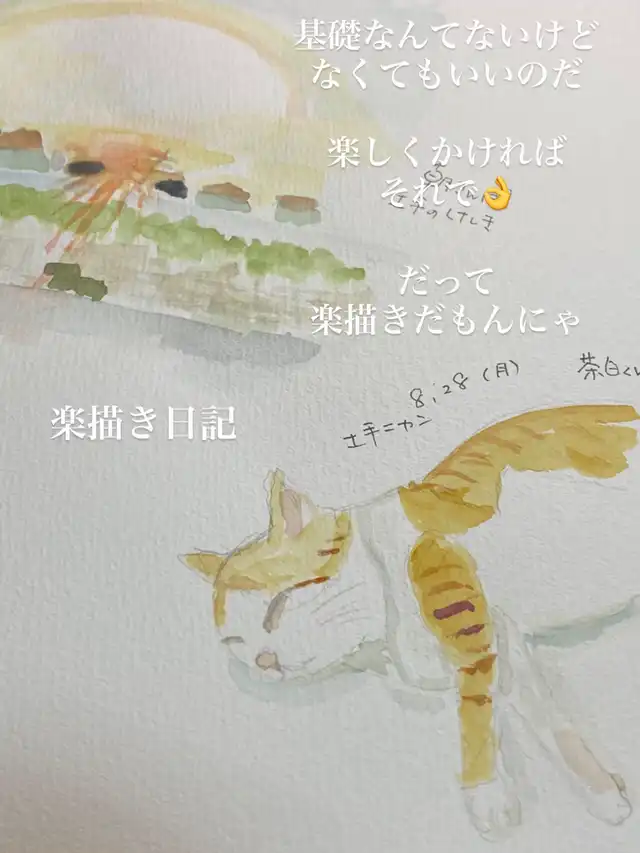 基礎なんてないけど
なくてもいいのだ
楽しくかければ
それで👌
のけしき
だって
楽描きだもんにゃ
8;28(月)
茶白くん
土手ニャン
楽描き日記